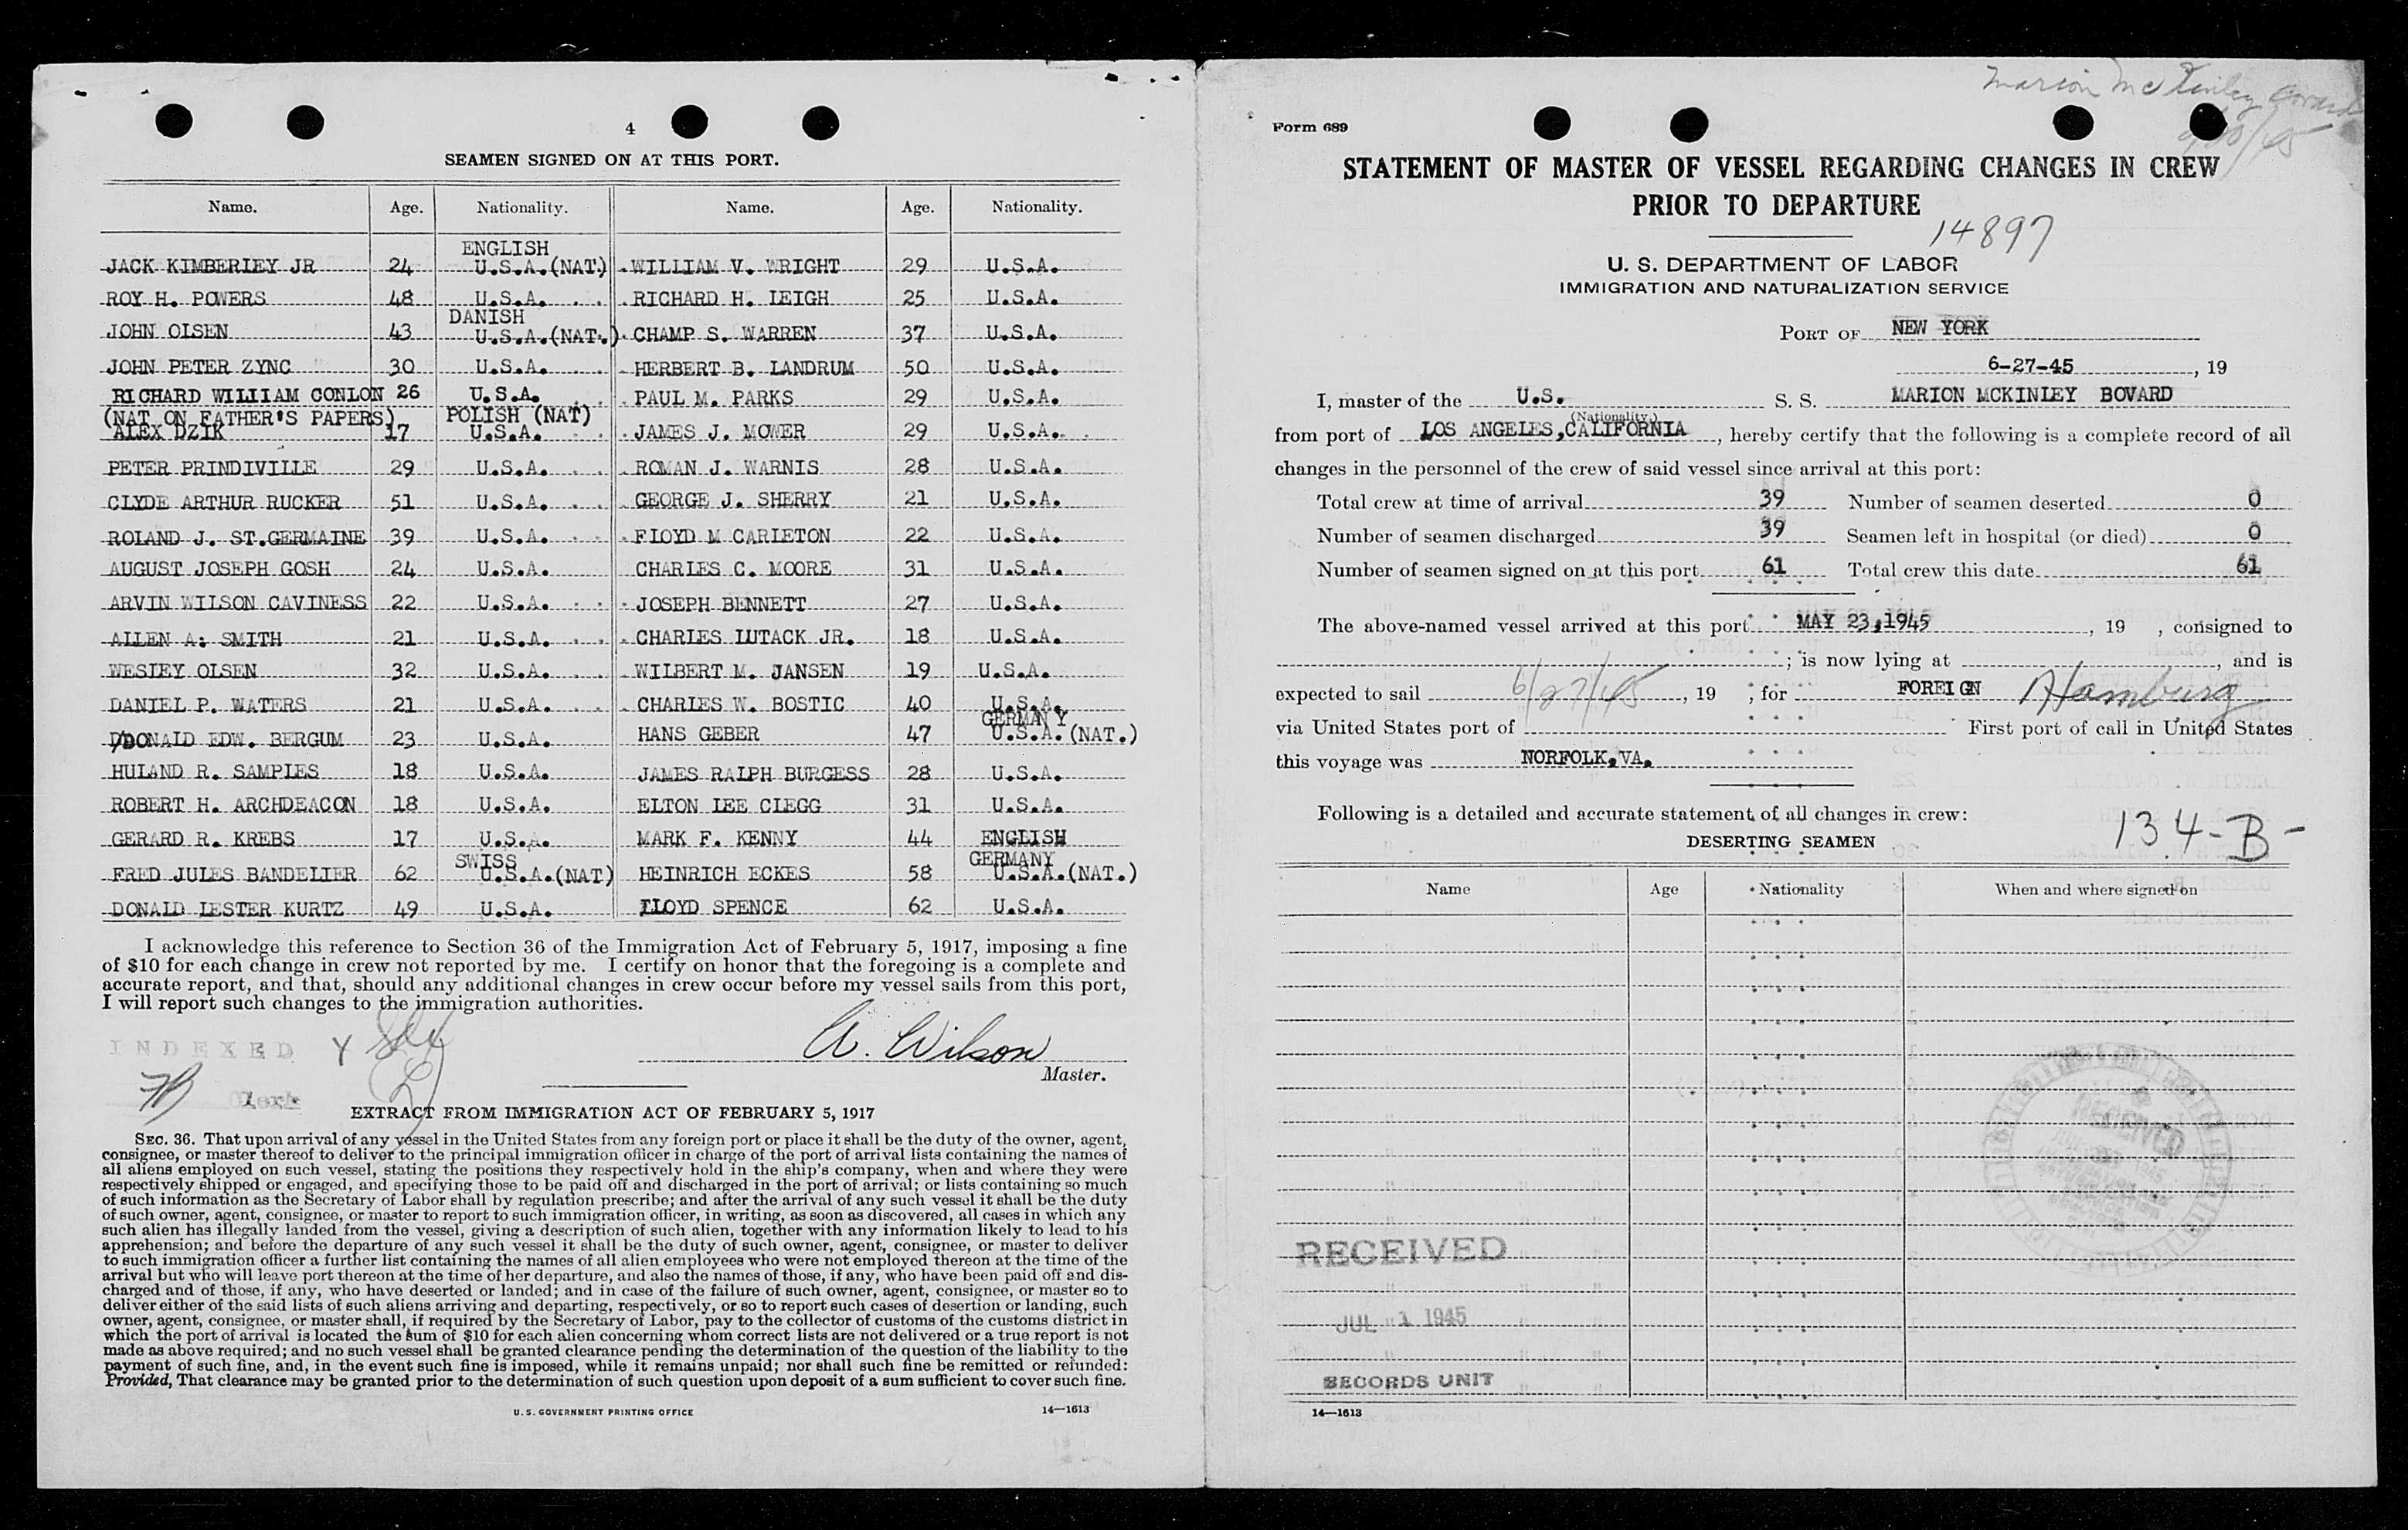 4
SEAMEN SIGNED ON AT THIS PORT.
Name. Age. Nationality. Name. Age. Nationality.
JACK KIMBERLEY JR 24 ENGLISH U.S.A.(NAT.) WILLIAM V. WRIGHT 29 U.S.A.
ROY H. POWERS 48 U.S.A. RICHARD H. LEIGH 25 U.S.A.
JOHN OLSEN 43 DANISH U.S.A.(NAT.) CHAMP S. WARREN 37 U.S.A.
JOHN PETER ZYNC 30 U.S.A. HERBERT B. LANDRUM 50 U.S.A.
RICHARD WILLIAM CONLON 26 U.S.A. PAUL M. PARKS 29 U.S.A.
(NAT ON FATHER'S PAPERS) POLISH (NAT)
ALEX DZIK 17 U.S.A. JAMES J. MOWER 29 U.S.A.
PETER PRINDIVILLE 29 U.S.A. ROMAN J. WARNIS 28 U.S.A.
CLYDE ARTHUR RUCKER 51 U.S.A. GEORGE J. SHERRY 21 U.S.A.
ROLAND J. ST.GERMAINE 39 U.S.A. FLOYD M CARLETON 22 U.S.A.
AUGUST JOSEPH GOSH 24 U.S.A. CHARLES C. MOORE 31 U.S.A.
ARVIN WILSON CAVINESS 22 U.S.A. JOSEPH BENNETT 27 U.S.A.
ALLEN A. SMITH 21 U.S.A. CHARLES LUTACK JR. 18 U.S.A.
WESLEY OLSEN 32 U.S.A. WILBERT M. JANSEN 19 U.S.A.
DANIEL P. WATERS 21 U.S.A. CHARLES W. BOSTIC 40 U.S.A.
DONALD EDW. BERGUM 23 U.S.A. HANS GEBER 47 GERMANY U.S.A.(NAT.)
HULAND R. SAMPLES 18 U.S.A. JAMES RALPH BURGESS 28 U.S.A.
ROBERT H. ARCHDEACON 18 U.S.A. ELTON LEE CLEGG 31 U.S.A.
GERARD R. KREBS 17 U.S.A. MARK F. KENNY 44 ENGLISH
FRED JULES BANDELIER 62 SWISS U.S.A.(NAT) HEINRICH ECKES 58 GERMANY U.S.A.(NAT.)
DONALD LESTER KURTZ 49 U.S.A. LLOYD SPENCE 62 U.S.A.
I acknowledge this reference to Section 36 of the Immigration Act of February 5, 1917, imposing a fine
of $10 for each change in crew not reported by me. I certify on honor that the foregoing is a complete and
accurate report, and that, should any additional changes in crew occur before my vessel sails from this port,
I will report such changes to the immigration authorities.
INDEXED
A. Wilson
Master.
Clerk
EXTRACT FROM IMMIGRATION ACT OF FEBRUARY 5, 1917
SEC. 36. That upon arrival of any vessel in the United States from any foreign port or place it shall be the duty of the owner, agent,
consignee, or master thereof to deliver to the principal immigration officer in charge of the port of arrival lists containing the names of
all aliens employed on such vessel, stating the positions they respectively hold in the ship's company, when and where they were
respectively shipped or engaged, and specifying those to be paid off and discharged in the port of arrival; or lists containing so much
of such information as the Secretary of Labor shall by regulation prescribe; and after the arrival of any such vessel it shall be the duty
of such owner, agent, consignee, or master to report to such immigration officer, in writing, as soon as discovered, all cases in which any
such alien has illegally landed from the vessel, giving a description of such alien, together with any information likely to lead to his
apprehension; and before the departure of any such vessel it shall be the duty of such owner, agent, consignee, or master to deliver
to such immigration officer a further list containing the names of all alien employees who were not employed thereon at the time of the
arrival but who will leave port thereon at the time of her departure, and also the names of those, if any, who have been paid off and dis-
charged and of those, if any, who have deserted or landed; and in case of the failure of such owner, agent, consignee, or master so to
deliver either of the said lists of such aliens arriving and departing, respectively, or so to report such cases of desertion or landing, such
owner, agent, consignee, or master shall, if required by the Secretary of Labor, pay to the collector of customs of the customs district in
which the port of arrival is located the sum of $10 for each alien concerning whom correct lists are not delivered or a true report is not
made as above required; and no such vessel shall be granted clearance pending the determination of the question of the liability to the
payment of such fine, and, in the event such fine is imposed, while it remains unpaid; nor shall such fine be remitted or refunded:
Provided, That clearance may be granted prior to the determination of such question upon deposit of a sum sufficient to cover such fine.
U. S. GOVERNMENT PRINTING OFFICE 14—1613
Marion McKinley Bovard
Form 689
STATEMENT OF MASTER OF VESSEL REGARDING CHANGES IN CREW
PRIOR TO DEPARTURE
14897
U. S. DEPARTMENT OF LABOR
IMMIGRATION AND NATURALIZATION SERVICE
PORT OF NEW YORK
6-27-45, 19
I, master of the U.S. S. S. MARION MCKINLEY BOVARD
(Nationality)
from port of LOS ANGELES,CALIFORNIA, hereby certify that the following is a complete record of all
changes in the personnel of the crew of said vessel since arrival at this port:
Total crew at time of arrival 39 Number of seamen deserted 0
Number of seamen discharged 39 Seamen left in hospital (or died) 0
Number of seamen signed on at this port 61 Total crew this date 61
The above-named vessel arrived at this port MAY 23,1945, 19 , consigned to
; is now lying at , and is
expected to sail 6/27/45, 19 ; for FOREIGN Hamburg
via United States port of First port of call in United States
this voyage was NORFOLK,VA.
Following is a detailed and accurate statement of all changes in crew:
134-B-
DESERTING SEAMEN
Name Age Nationality When and where signed on
RECEIVED
RECEIVED
JUL 1 1945
RECORDS UNIT
14—1613